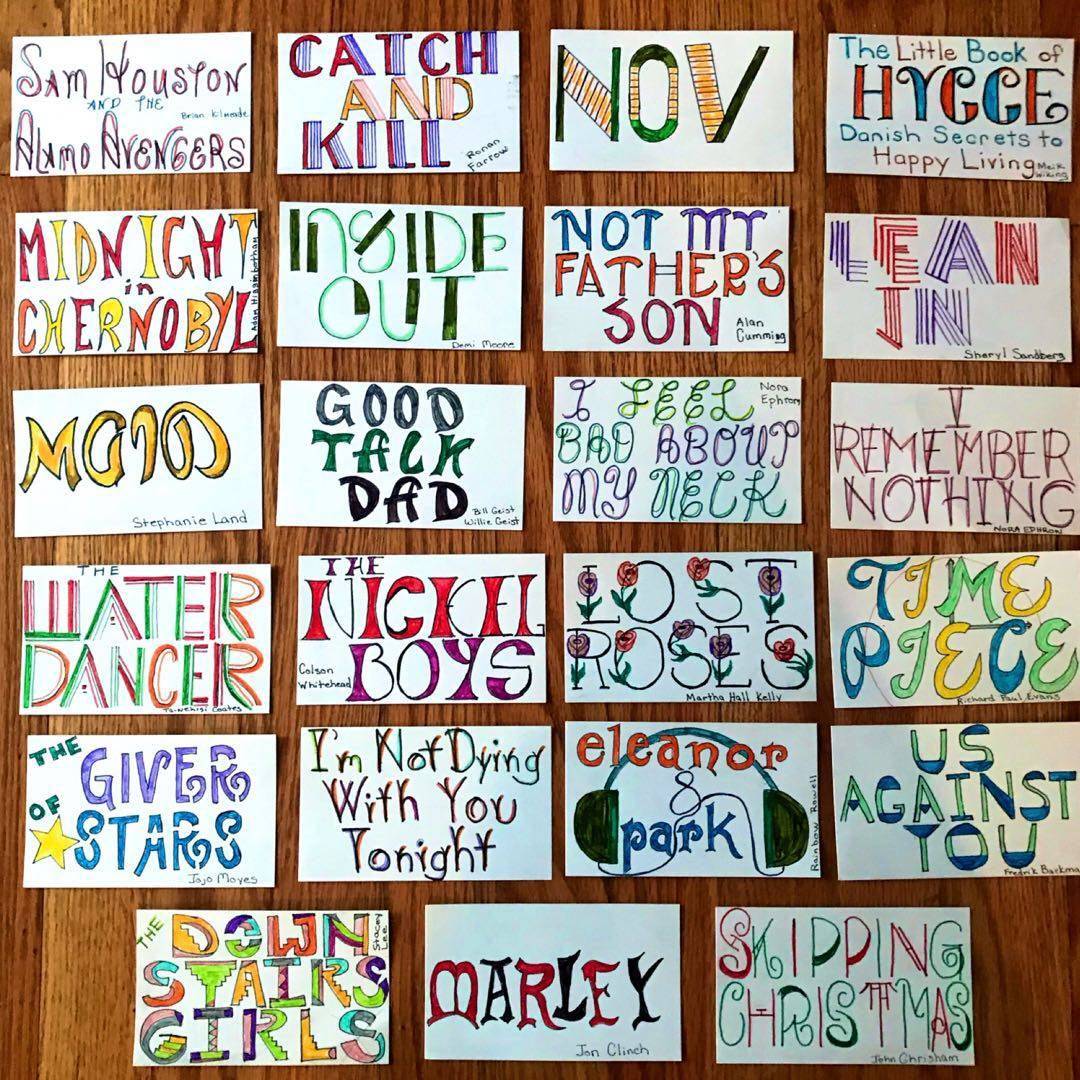 SAM HOUSTON
AND THE
Brian Kilmeade
ALAMO AVENGERS
CATCH
AND
KILL
Ronan
Farrow
NOV
The Little Book of
HYGGE
Danish Secrets to
Happy Living
Meik
Wiking
MIDNIGHT
in
CHERNOBYL
Adam Higgenbotham
INSIDE
OUT
Demi Moore
NOT MY
FATHER'S
SON
Alan
Cumming
LEAN
IN
Sheryl Sandberg
MAID
Stephanie Land
GOOD
TALK
DAD
Bill Geist
Willie Geist
I FEEL
Nora
Ephron
BAD ABOUT
MY NECK
I
REMEMBER
NOTHING
NORA EPHRON
THE
WATER
DANCER
Ta-Nehisi Coates
THE
NICKEL
BOYS
Colson
Whitehead
LOST
ROSES
Martha Hall Kelly
TIME
PIECE
Richard Paul Evans
THE
GIVER
OF
STARS
Jojo Moyes
I'm Not Dying
With You
Tonight
eleanor
&
park
Rainbow Rowell
US
AGAINST
YOU
Fredrik Backma
THE
DOWN
STAIRS
GIRLS
Stacey
Lee
MARLEY
Jon Clinch
SKIPPING
CHRISTMAS
John Chrisham